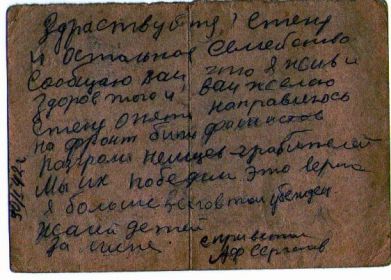 Здраствуйте! Степу
и остальное Семейство
Сообщаю вам, что я жив и
здоров того и вам желаю
Степу опять направляюсь
на фронт бить фашистов
немцев-грабителей
Мы их победим это верно
Я больше всего в том убежден.
Жалей детей
за меня.
с приветом
АФ Сергеев
30/V 42 г